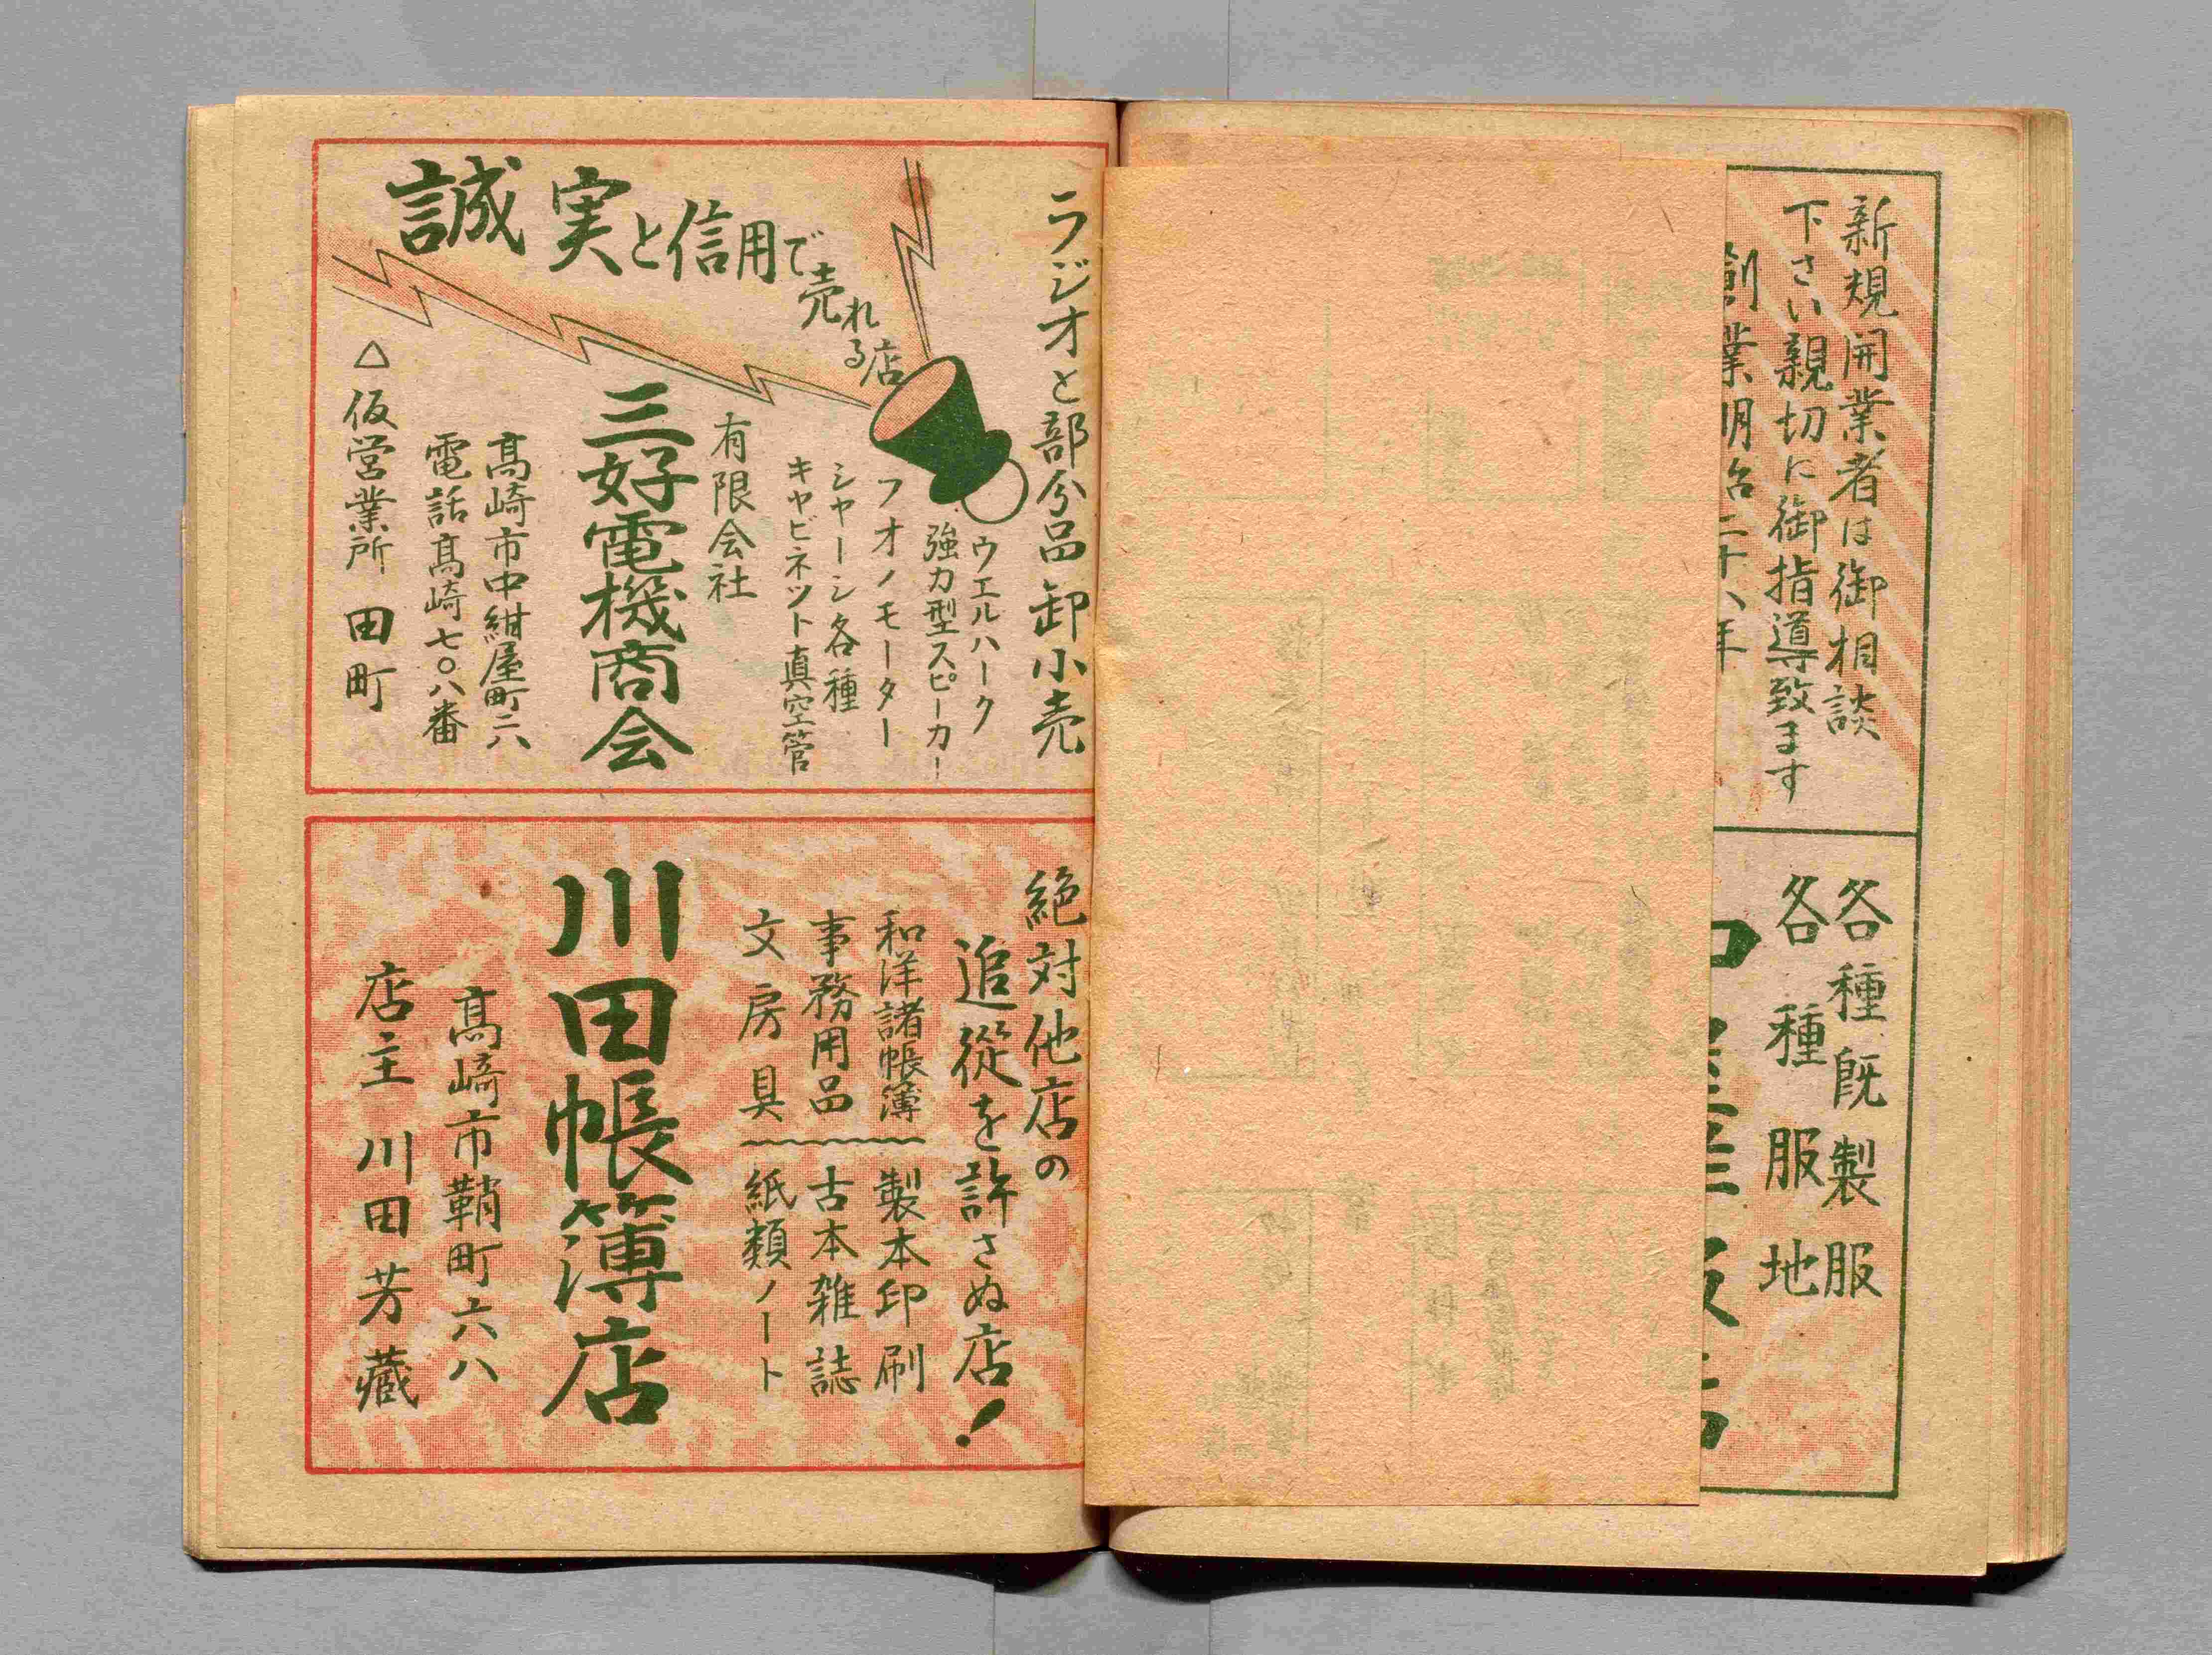 新規開業者は御相談
下さい親切に御指導致ます
創業明治二十八年
各種既製服
各種服地
ラジオと部分品卸小売
誠実と信用で売れる店
ウエルハーク
強力型スピーカー
フオノモーター
シヤーシ各種
キヤビネット真空管
有限会社
三好電機商会
高崎市中紺屋町二六
電話高崎七〇八番
△仮営業所 田町
絶対他店の
追従を許さぬ店!
和洋諸帳簿 製本印刷
事務用品 古本雑誌
文房具 紙類ノート
川田帳簿店
高崎市鞘町六八
店主 川田芳蔵